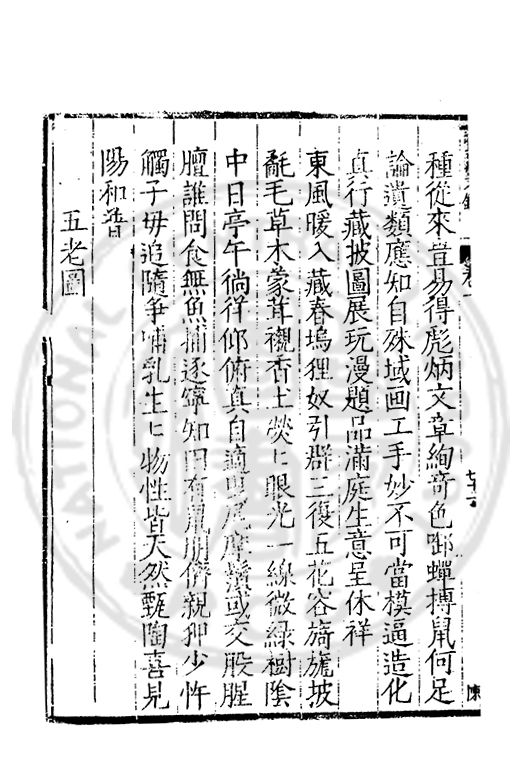 種從來豈易得彪炳文章絢奇色啣蟬搏鼠何足
論遺類應知自殊域画工手妙不可當模逼造化
真行藏披圖展玩漫題品滿庭生意呈休祥
東風暖入藏春塢狸奴引群三復五花容旖旎坡
毛草木蒙茸襯香土熒〻眼光一線微綠樹陰
中日亭午徜徉仰俯真自適曳尾摩鬚或交股腥
膻誰問食無魚捕逐寧知田有鼠朋儕親狎少忤
觸子母追隨爭哺乳生〻物性皆天然甄陶喜見
陽和普
五老圖
卷一
陳
NATIONAL